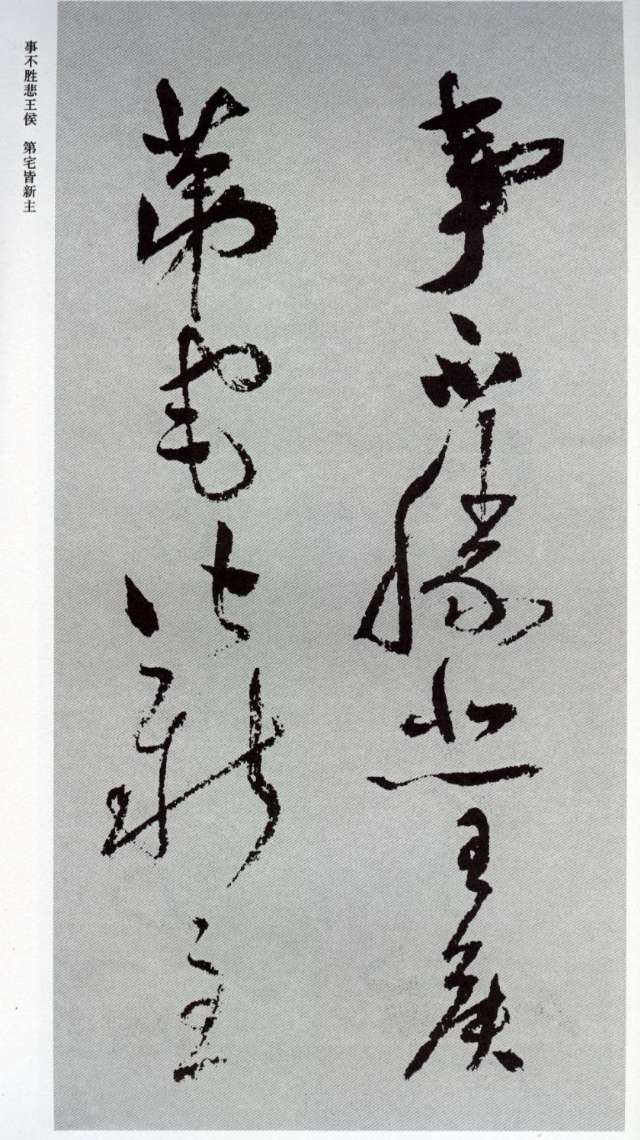 事不胜悲王侯
第宅皆新主
事不胜悲王侯　第宅皆新主